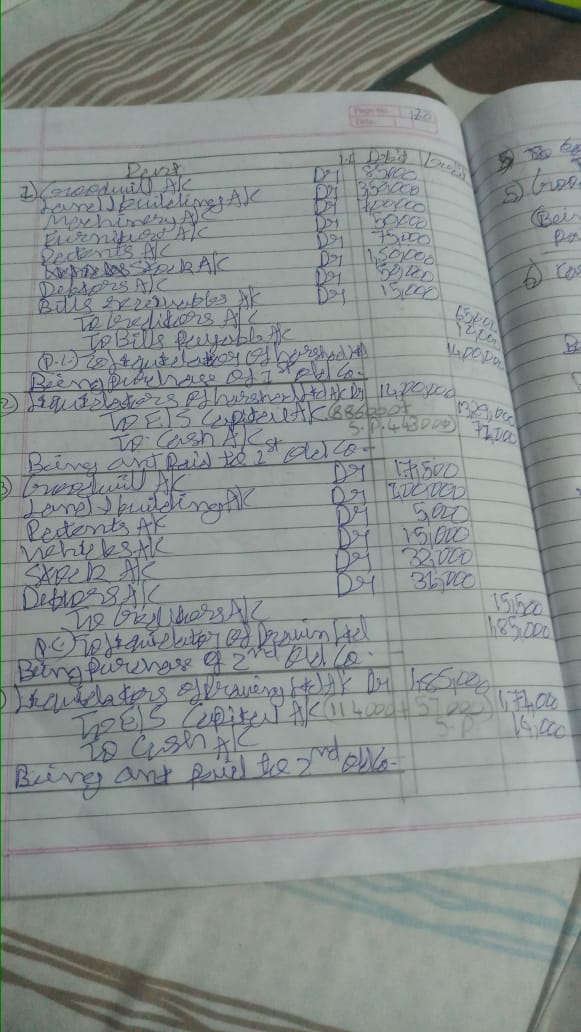 Page No. 122
Date
Parti. L.F. Debit Credit
1) Goodwill A/C Dr 85,000
Land & building A/C Dr 350,000
Machinery A/C Dr
Furniture A/C Dr
Patents A/C Dr 75000
Stock A/C Dr 1,50,000
Debtors A/C Dr
Bills receivables A/C Dr 15,000
To Creditors A/C
To Bills Payable A/C
(P.C) To Liquidator of harshad ltd 14,00,000
Being purchase of 1st old Co.
2) Liquidators of harshad ltd A/C Dr 14,00,000
To E/S Capital A/C (886000+ 1329,000
S.P. 443000)
To Cash A/C 71,000
Being amt paid to 1st old Co-
3) Goodwill A/C Dr 17,500
Land & building A/C Dr 1,00,000
Patents A/C Dr 5,000
Vehicles A/C Dr 15,000
Stock A/C Dr 32,000
Debtors A/C Dr 31,000
To Creditors A/C 15,500
P.C) To Liquidator of Pravin ltd 1,85,000
Being purchase of 2nd old Co.
Liquidators of Pravin ltd A/C Dr 1,85,000
To E/S Capital A/C (114000+57000) 1,71,000
S.P.
To Cash A/C 14,000
Being amt paid to 2nd old Co-
5)
(Bei
6)